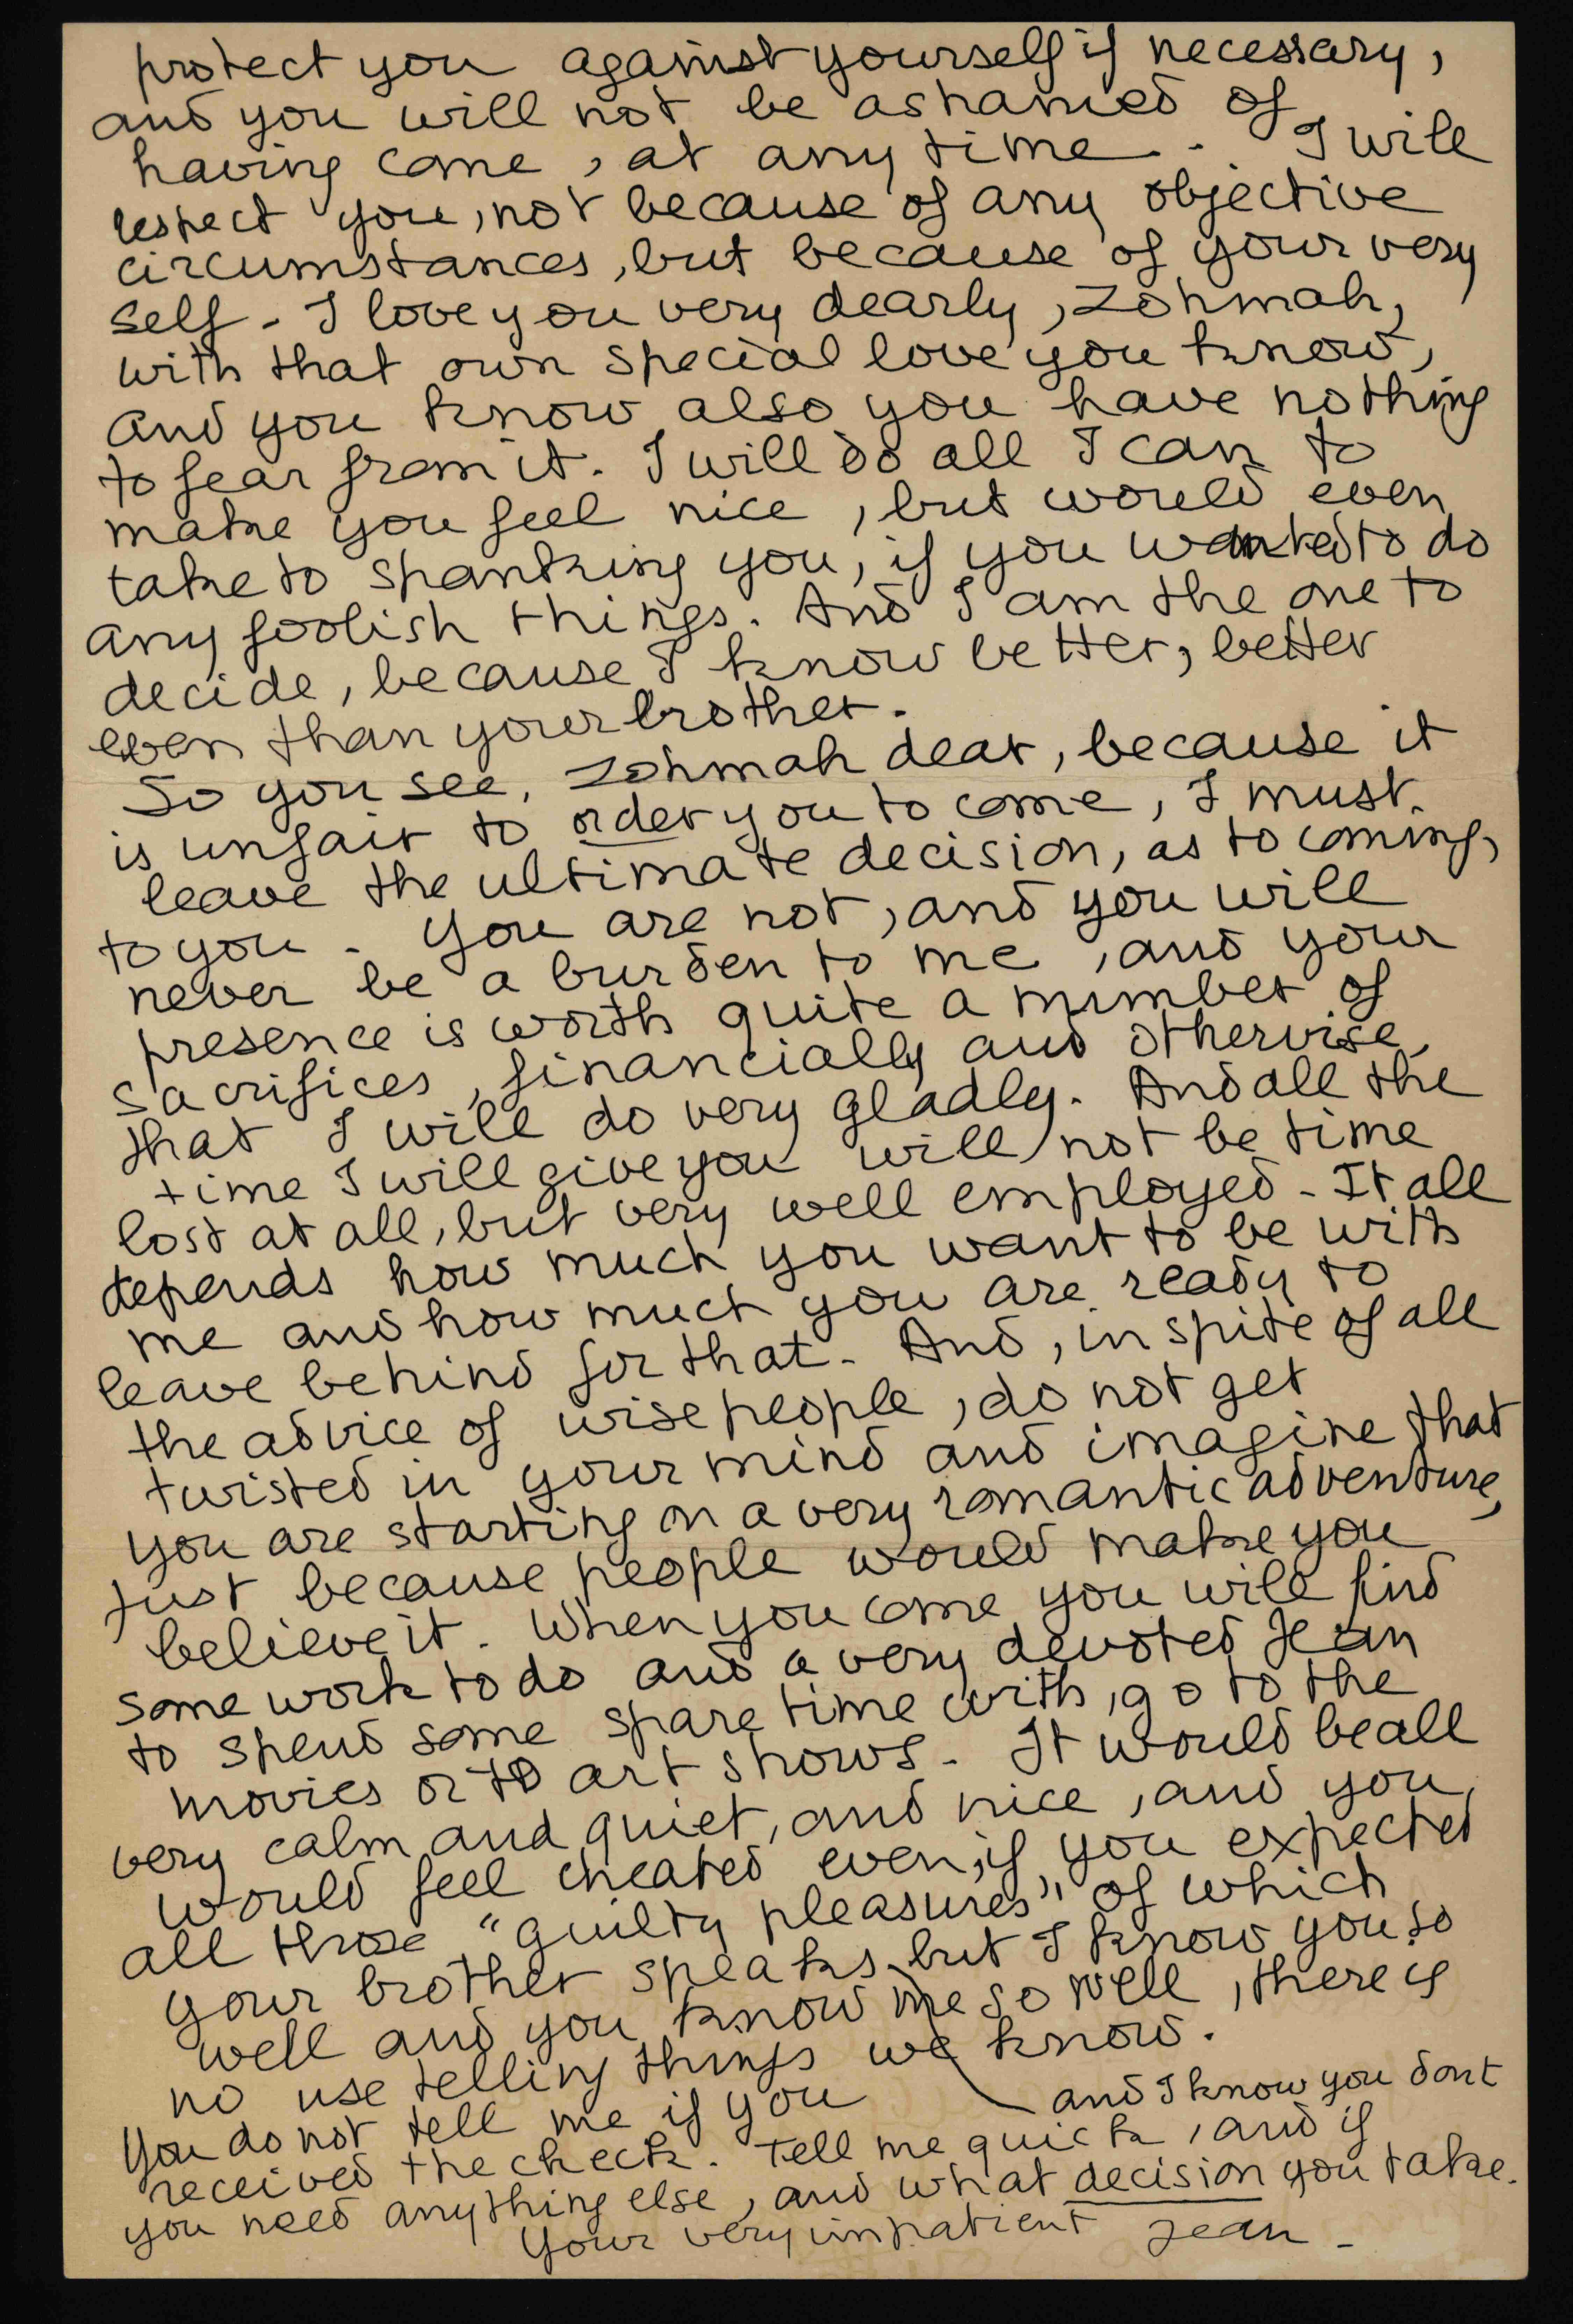 protect you against yourself if necessary,
and you will not be ashamed of
having come, at any time. - I will
respect you, not because of any objective
circumstances, but because of your very
self - I love you very dearly, Zohmah,
with that own special love you know,
and you know also you have nothing
to fear from it. I will do all I can to
make you feel nice, but would even
take to spanking you, if you wanted to do
any foolish things. And I am the one to
decide, because I know better, better
even than your brother.
So you see, Zohmah dear, because it
is unfair to order you to come, I must
leave the ultimate decision, as to coming,
to you - You are not, and you will
never be a burden to me, and your
presence is worth quite a number of
sacrifices, financially and otherwise,
that I will do very gladly. And all the
time I will give you will not be time
lost at all, but very well employed - It all
depends how much you want to be with
me and how much you are ready to
leave behind for that - And, in spite of all
the advice of wise people, do not get
twisted in your mind and imagine that
you are starting on a very romantic adventure,
just because people would make you
believe it. When you come you will find
some work to do and a very devoted Jean
to spend some spare time with, go to the
movies or to art shows - It would be all
very calm and quiet, and nice, and you
would feel cheated even, if you expected
all those "guilty pleasures" of which
your brother speaks, but I know you so
well and you know me so well, there is
no use telling things we know.
and I know you dont
You do not tell me if you
received the check. Tell me quick, and if
you need anything else, and what decision you take.
Your very impatient Jean -